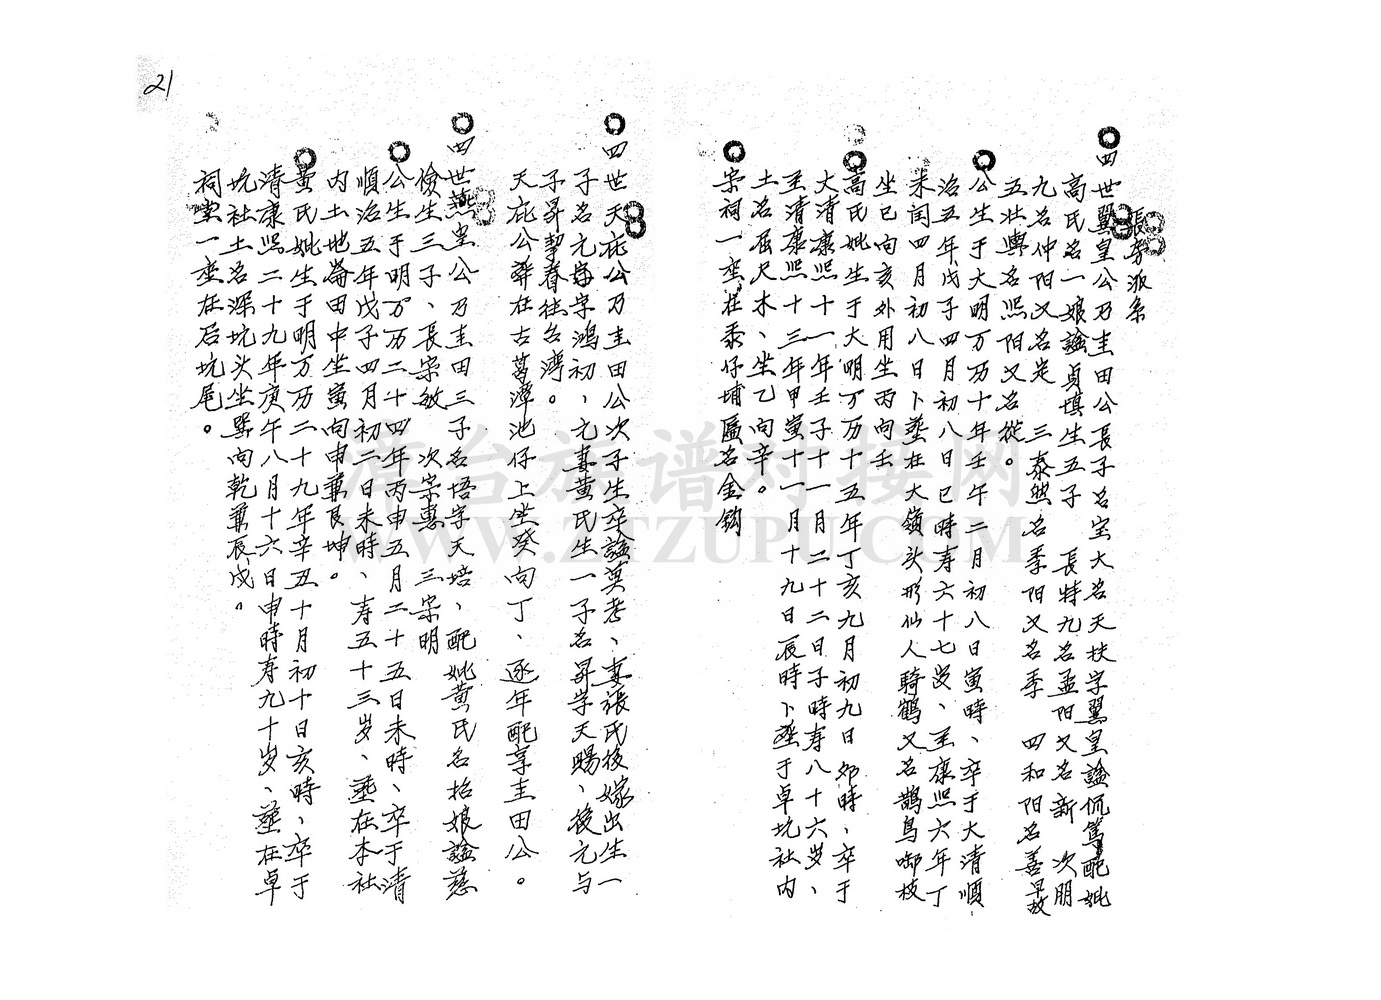 21
長房派系
四世翼皇公乃圭田公長子名宝大名天扶字翼皇謚侃篤配妣
高氏名一娘謚貞填生五子 長特九名孟阳又名新 次朋
九名仲阳又名定 三泰與名季阳又名季 四和阳名善早故
五壮興名熙阳又名從。
公生于大明万历十年壬午二月初八日寅時、卒于大清順
治五年戊子四月初八日巳時寿六十七岁、至康熙六年丁
未闰四月初八日卜塟在大嶺头形仙人騎鹤又名鵲鳥啣枝
坐巳向亥外用坐丙向壬
高氏妣生于大明万历十五年丁亥九月初九日卯時、卒于
大清康熙十一年壬子十一月二十二日子時寿八十六岁、
至清康熙十三年甲寅十一月十九日辰時卜塟于卓坑社内
土名屈尺木、坐乙向辛。
宗祠一座在黍仔埔匾名金鈎
四世天庇公乃圭田公次子生卒謚莫考、妻張氏後嫁出生一
子名元每字鴻初、元妻黄氏生一子名昇字天賜、後元与
子昇挈眷往台湾。
天庇公葬在古莒潭池仔上坐癸向丁、逐年配享圭田公。
四世燕皇公乃圭田三子名悟字天培、配妣黄氏名抬娘謚慈
儉生三子、長宗敏 次宗惠 三宗明
公生于明万历二十四年丙申五月二十五日未時、卒于清
順治五年戊子四月初二日未時、寿五十三岁、塟在本社
内土地崙田中坐寅向申兼艮坤。
黄氏妣生于明万历二十九年辛丑十月初十日亥時、卒于
清康熙二十九年庚午八月十六日申時寿九十岁、塟在卓
坑社土名深坑头坐巽向乾兼辰戌。
祠堂一座在后坑尾。
漳台族谱对接网
WWW.ZTZUPU.COM